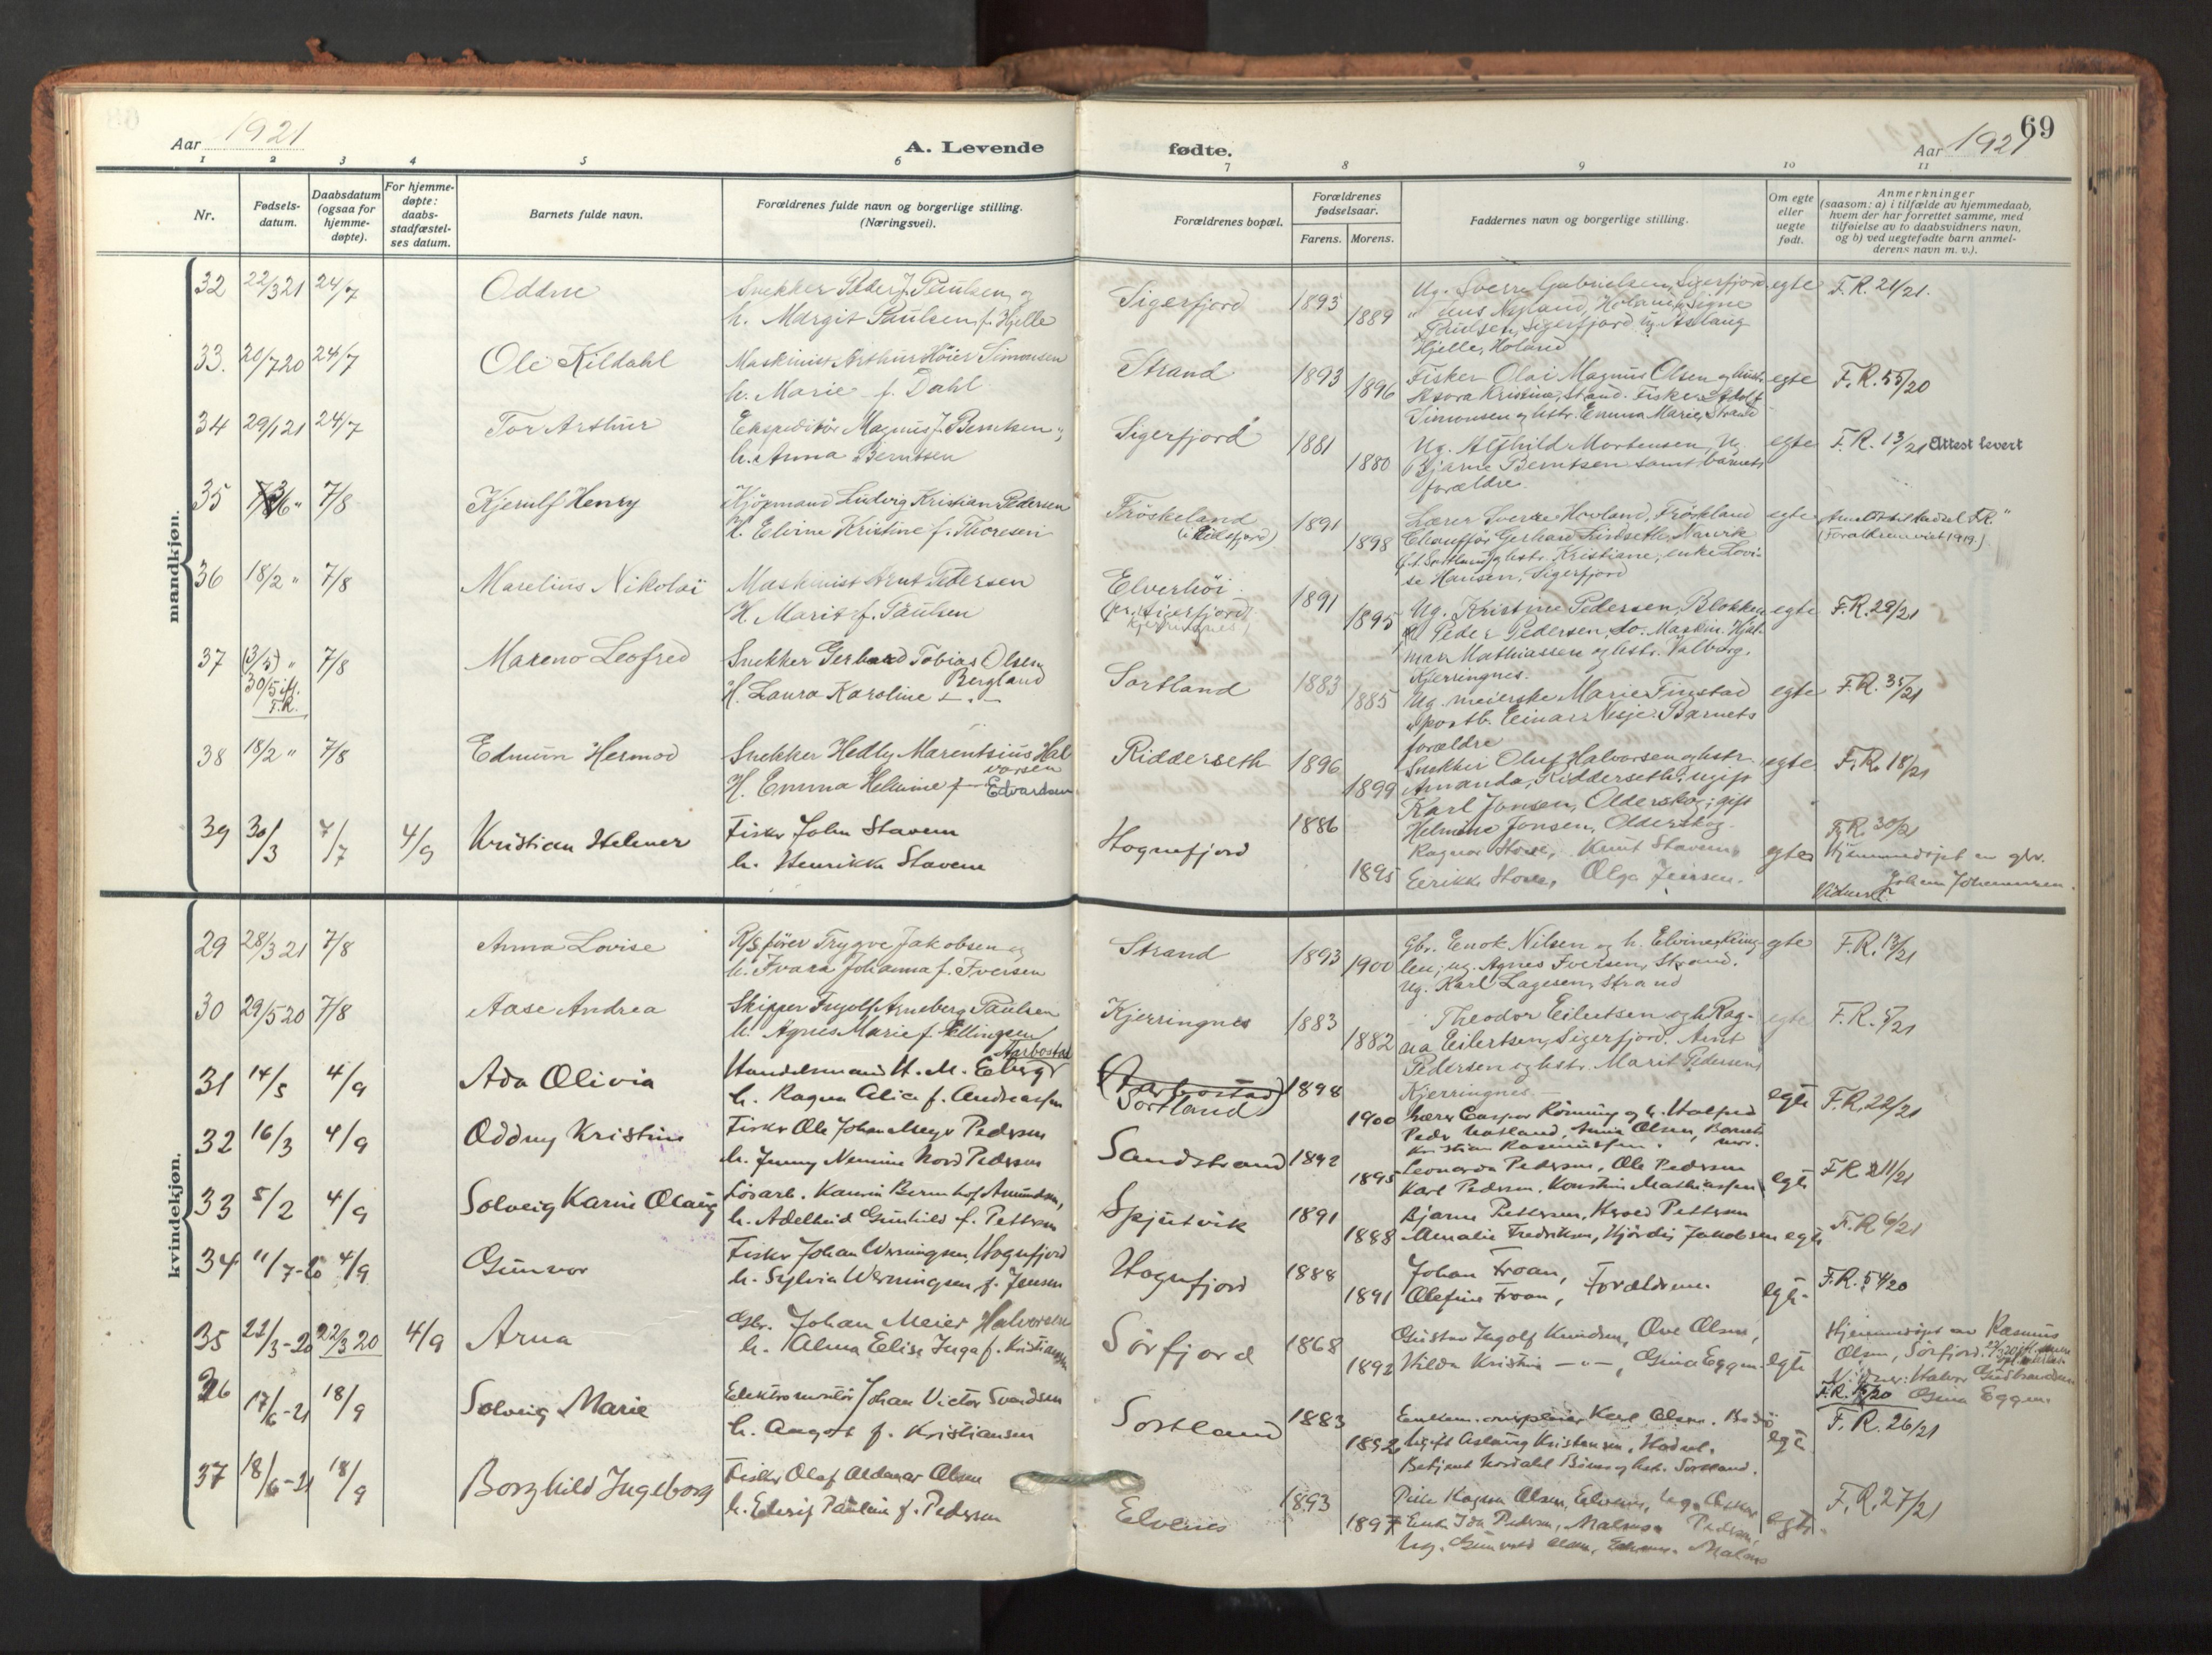 69
Aar 1921
A. Levende
fødte.
Aar 1921
1 2 3 4 5 6 7 8 9 10 11
Nr.
Fødsels-datum.
Daabsdatum (ogsaa for hjemme-døpte).
For hjemme-døpte: daabs-stadfæstel-ses datum.
Barnets fulde navn.
Forældrenes fulde navn og borgerlige stilling. (Næringsvei).
Forældrenes bopæl.
Forældrenes fødselsaar.
Farens. Morens.
Faddernes navn og borgerlige stilling.
Om egte eller uegte født.
Anmerkninger
(saasom: a) i tilfælde av hjemmedaab, hvem der har forrettet samme, med tilføielse av to daabsvidners navn, og b) ved uegtefødte barn anmel-derens navn m. v.).
mandkjøn.
32 22/3 21 24/7 Snekker Peder J. Paulsen og Sigerfjord 1893 Ug. Sverre Gabrielsen, Sigerfjord egte F.R. 21/21.
h. Margit Paulsen f. Hjelle 1889
Paulsen, Sigerfjord ug. Aslaug
Hjelle, Holand
33. 20/7 20 24/7 Ole Kildahl Maskinist Arthur Höier Simonsen Strand 1893 Fisker Olai Magnus Olsen og hustr. egte F.R. 55/20
h. Marie f. Dahl 1896 Kristine, Strand. Fisker Adolf
Simonsen og hstr. Emma Marie, Strand
34 29/1 21 24/7 Tor Arthur Ekspeditör Magnus J. Berntsen Sigerfjord 1881 Ug. Alfhild Mortensen, Ug. egte F.R. 13/21 Attest levert
h. Anna Berntsen 1880 Bjarne Berntsen samt barnets
forældre.
35 7/8 Kjerulf Henry Kjøpmand Ludvig Kristian Pedersen Fröskeland 1891 Lærer Sverre Hovland, Fröskland egte
H. Elvine Kristine f. Thoresen (i Eidsfjord) 1898 Chaufför Gerhard Lindseth, Narvik (Forældrene viet 1919.)
hstr. Kristiane, enke Lovi-
se Hansen, Sigerfjord
36 18/2 " 7/8 Marelius Nikolai Maskinist Arnt Pedersen Elverhöi 1891 Ug. Kristine Pedersen, Blokken egte F.R. 29/21
H. Marit f. Paulsen (pr. Sigerfjord) 1895 Peder Pedersen, do. Maskin. Hjal-
Kjerringnes mar Mathiassen og hstr. Valborg,
Kjerringnes.
37 (3/5) " 7/8 Mareno Leofred Snekker Gerhard Tobias Olsen Sortland 1883 Ug. meierske Marie Finstad egte F.R. 35/21
30/5 ifl. F.R. Bergland
H. Laura Karoline 1885 postb. Einar Nesje. Barnets
forældre
38 18/2 " 7/8 Edmun Hermod Snekker Hedly Marentsius Hal Ridderseth 1896 Snekker Oluf Halvorsen og hstr. egte F.R. 18/21
vorsen
H. Emma Helmine f. Edvardsen 1899 Amanda, Ridderseth; ugift
Karl Jonsen, Olderskog; gift
Helmine Jonsen, Olderskog.
39 30/3 7/7 4/9 Kristian Helmer Fisker John Stavem Hognfjord 1886 Knut Stavem egte F.R. 30/21
h. Henrikke Stavem 1895 Olga Jensen. Hjemmedöpt av gbr.
Johan Johannesen.
kvindekjøn.
29 28/3 21 7/8 Anna Lovise R/s förer Trygve Jakobsen og Strand 1893 Gbr. Enok Nilsen og h. Elvine, egte F.R. 13/21
h. Ivara Johanna f. Iversen 1900 ug. Agnes Iversen, Strand.
Ug. Karl Lagesen, Strand
30 29/5 20 7/8 Aase Andrea Skipper Ingolf Arneberg Paulsen Kjerringnes 1883 Theodor Eilertsen og h. Rag- egte F.R. 5/21
h. Agnes Marie f. Ellingsen 1882 na Eilertsen, Sigerfjord. Arnt
Pedersen og hstr. Marit Pedersen,
Kjerringnes.
31 14/5 4/9 Ada Olivia Handelsmand H. M. Eberg Aarbostad (Aarbostad) Sortland 1898 egte F.R. 28/21
h. Ragna Alice f. Andreassen 1900 Lærer Caspar Rönning og h. Halfrid
Anna Olsen, Barnets mor.
Kristian Rasmussen.
32 16/3 4/9 Oddny Kristine Fisker Ole Johan Meyer Pedersen Sandstrand 1892 Leonarda Pedersen, Ole Pedersen egte F.R. 211/21
h. Jenny Nemine Nord Pedersen 1895 Karl Pedersen. Konstanse Mathiassen
33 5/2 4/9 Solveig Karin Olaug Lösarb. Kaurin Bernhof Amundsen, Spjutvik 1891 Bjarne Pettersen, Pettersen F.R. 6/21
h. Adelheid Gunhild f. Pettersen 1888 Amalie Fredriksen, Hjördis Jakobsen egte
34 11/7-20 4/9 Gunvor Fisker Johan Werningsen, Hognfjord Hognfjord 1888 Johan Froan, Forældrene. egte. F.R. 54/20
h. Sylvia Werningsen f. Jensen 1891 Olefine Froan,
35 22/3-20 22/3 20 4/9 Arna Gbr. Johan Meier Halvorsen Sörfjord 1868 Gustav Ingolf Knudsen, Ove Olsen, Hjemmedöpt av Rasmus
h. Alma Elise Inga f. Kristiansen 1892 Hilda Kristine —"—, Gina Eggen. egte Olsen, Sörfjord.
Vidner: Halvor Gudbrandsen
F.R. 15/20 Gina Eggen.
36 17/6-21 18/9 Solveig Marie Elektromontör Johan Victor Svendsen Sortland 1883 Karl Olsen. Bodö egte F.R. 26/21
h. Aagot f. Kristiansen 1892 Ugift Aslaug Kristensen, Hadsel.
Betjent Nordahl og hstr. Sortland.
37 18/6-21 18/9 Borghild Ingeborg Fisker Olaf Aldemar Olsen Elvenes 1893 Pike Ragna Olsen, Elvenes, ug. Oskar Pedersen, egte. F.R. 27/21
h. Edvig Pauline f. Pedersen 1897 Enke Ida Pedersen, Malnes
Ug. Gunvald Olsen, Elvenes. Malnes